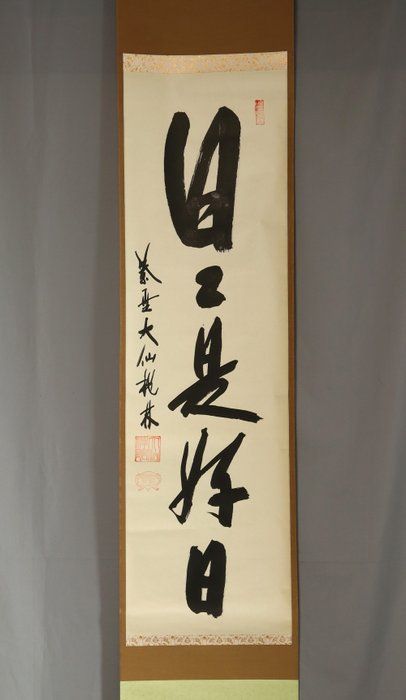 日々是好日
紫野大仙桃林